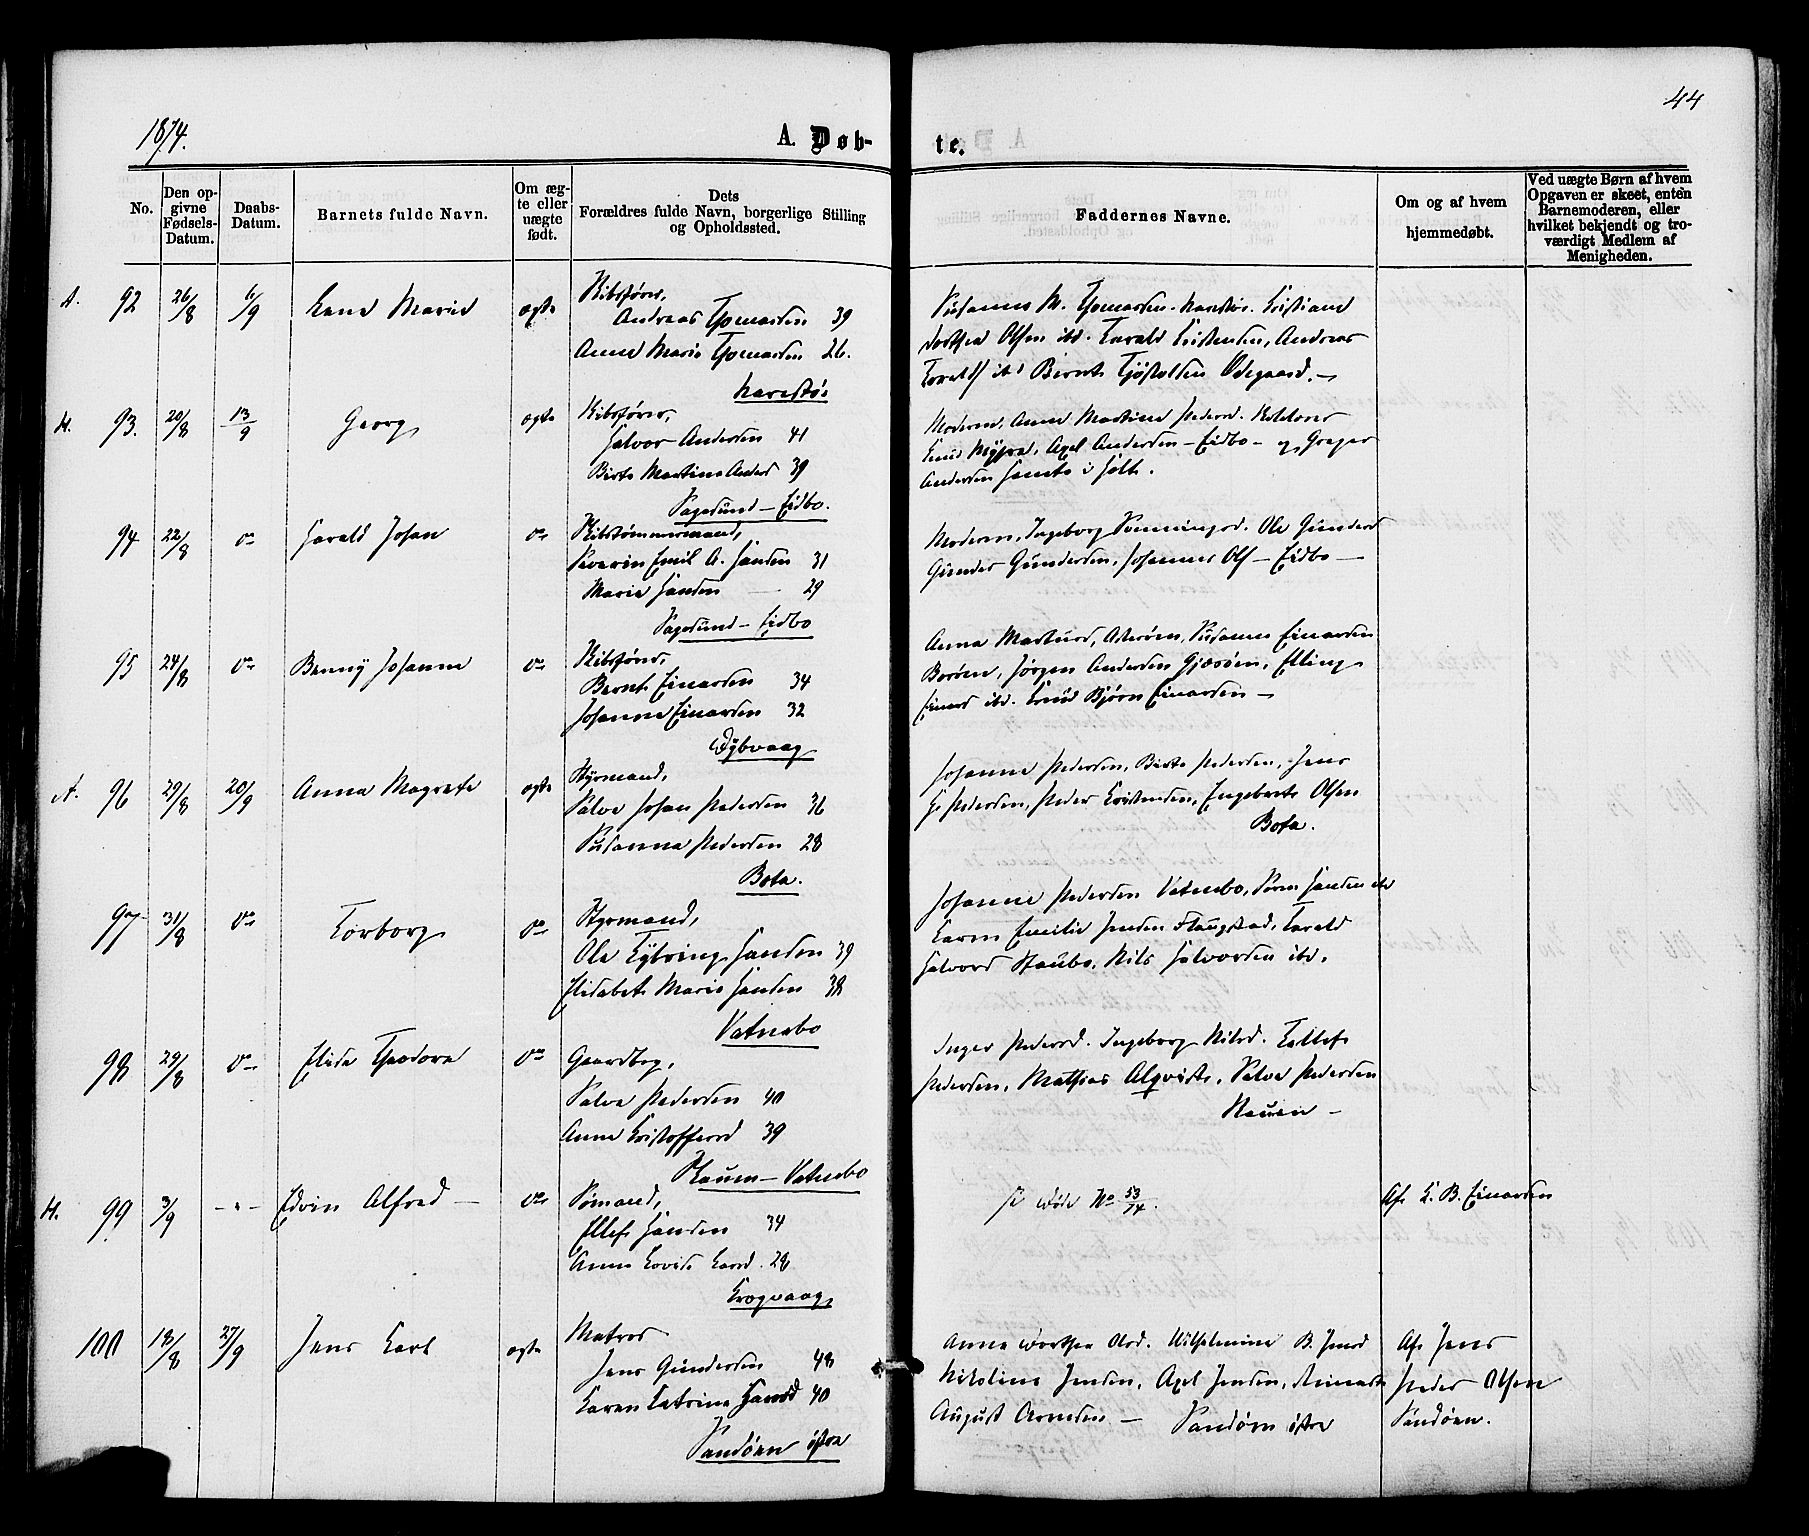 44
1874.
A. Døb-
te.
No.
Den op-
givne
Fødsels-
Datum.
Daabs-
Datum.
Barnets fulde Navn.
Om æg-
te eller
uægte
født.
Dets
Forældres fulde Navn, borgerlige Stilling
og Opholdssted.
Faddernes Navne.
Om og af hvem
hjemmedøbt.
Ved uægte Børn af hvem
Opgaven er skeet, enten
Barnemoderen, eller
hvilket bekjendt og tro-
værdigt Medlem af
Menigheden.
92 26/8 6/9 Lena Marie ægte
Skibsfører,
Andreas Thomassen 39
Anne Marie Thomassen 26.
Narestø
Susanne M. Thomassen Narestø. Kristiane
Dorthea Olsen ibd. Tarald Kristensen, Andreas
Taralds ibd Bernt Tjøstolsen Ødegaard.
93. 20/8 13/9 Georg ægte
Skibsfører,
Halvor Andersen 41
Birte Martine Anders 39
Sagesund - Eidbo.
Moderen, Anne Martine Pedersd.
Knud Myhra, Axel Andersen - Eidbo - og Greger
Andersen i Holt.
94 22/8 do Harald Johan do
Skibstømmermand,
Severin Emil A. Hansen 31
Marie Hansen 29
Sagesund - Eidbo
Moderen, Ingeborg Svenningsd. Ole Gunders
Gunder Gundersen, Johannes Ols - Eidbo -
95 24/8 do Benny Johanne do
Skibsfører,
Bernt Einarsen 34
Johanne Einarsen 32
Dybvaag
Anna Mortensd, Askerøen, Susanne Einarsen
Borøen, Jørgen Andersen Gjæsøen, Elling
Einars ibd. Knud Bjørn Einarsen -
96 29/8 20/9 Anna Magrete ægte
Styrmand,
Salve Johan Pedersen 36
Susanna Pedersen 28
Bota.
Johanne Pedersen, Birte Pedersen, Jens
G. Pedersen, Peder Kristensen, Engebret Olsen
Bota.
97 31/8 do Torborg do
Styrmand,
Ole Kybring Hansen 39
Elisabet Marie Hansen 38
Vatnebo
Johanne Pedersen Vatnebo, Søren Hansen ibd
Karen Emilie Jensen Flaugstad, Tarald
Halvors Staubo, Nils Halvorsen ibd.
98 29/8 do Elida Theodora do
Gaardbrg,
Salve Pedersen 40
Anne Kristoffersd 39
Skauen - Vatnebo
Inger Pedersd. Ingeborg Nilsd. Tellef
Pedersen, Mathias Alqvist, Salve Pedersen
Skauen -
H. 99 3/9 - " - Edvin Alfred - do
Sømand,
Ellef Hansen 34
Anne Lovise Larsd. 28
Krogvaag
s. Døde No 53/74.
Af K. B. Einarsen
100 18/8 27/9 Jens Karl ægte
Matros
Jens Gundersen 48
Karen Katrine Hansd 40
Sandøen østre
Anne Dorthea Arsd. Wilhelmine B. Jensd
Nikoline Jensen, Axel Jensen,
August Arnesen - Sandøen østre
Af Jens
Peder Olsen
Sandøen.